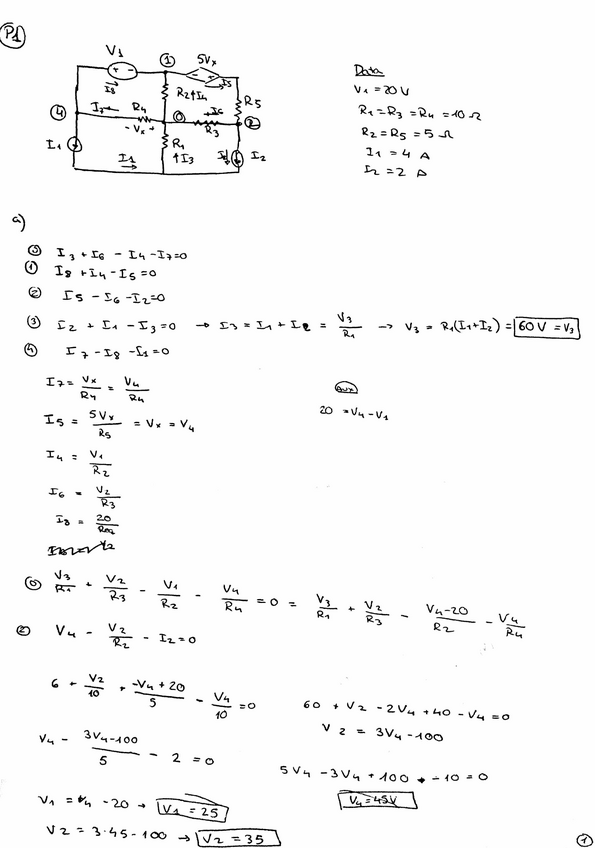 P1
V1
1
5Vx
I8
I5
R2
I4
R5
4
I7
R4
0
I6
2
- Vx +
R3
I1
R1
I3
I1
I2
Data
V1 = 20 V
R1 = R3 = R4 = 10 Ω
R2 = R5 = 5 Ω
I1 = 4 A
I2 = 2 A
a)
0 I3 + I6 - I4 - I7 = 0
1 I8 + I4 - I5 = 0
2 I5 - I6 - I2 = 0
3 I2 + I1 - I3 = 0 → I3 = I1 + I2 = V3/R1 → V3 = R1(I1+I2) = 60V = V3
4 I7 - I8 - I1 = 0
I7 = Vx/R4 = V4/R4
AUX
I5 = 5Vx/R5 = Vx = V4
20 = V4 - V1
I4 = V1/R2
I6 = V2/R3
I8 = 20/
0 V3/R1 + V2/R3 - V1/R2 - V4/R4 = 0 = V3/R1 + V2/R3 - V4-20/R2 - V4/R4
2 V4 - V2/R2 - I2 = 0
6 + V2/10 + -V4+20/5 - V4/10 = 0
60 + V2 - 2V4 + 40 - V4 = 0
V2 = 3V4 - 100
V4 - 3V4-100/5 - 2 = 0
5V4 - 3V4 + 100 - 10 = 0
V4 = 45V
V1 = V4 - 20 → V1 = 25
V2 = 3·45 - 100 → V2 = 35
1